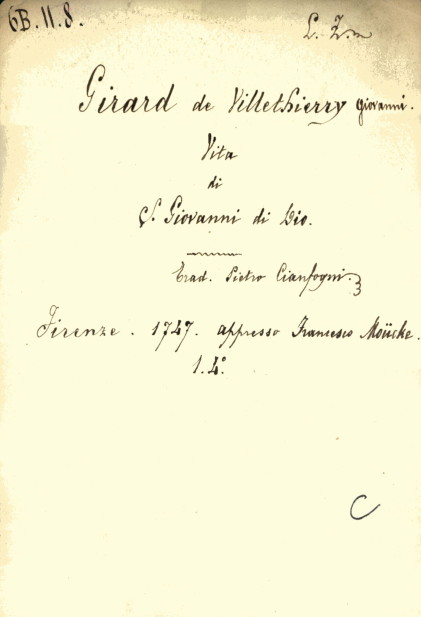 6B.11.8.
Girard de Villethierry Giovanni.
Vita
di
S. Giovanni di Dio.
Trad. Pietro Cianfogni.
Firenze. 1747. appresso Francesco Moücke.
1.4º
C